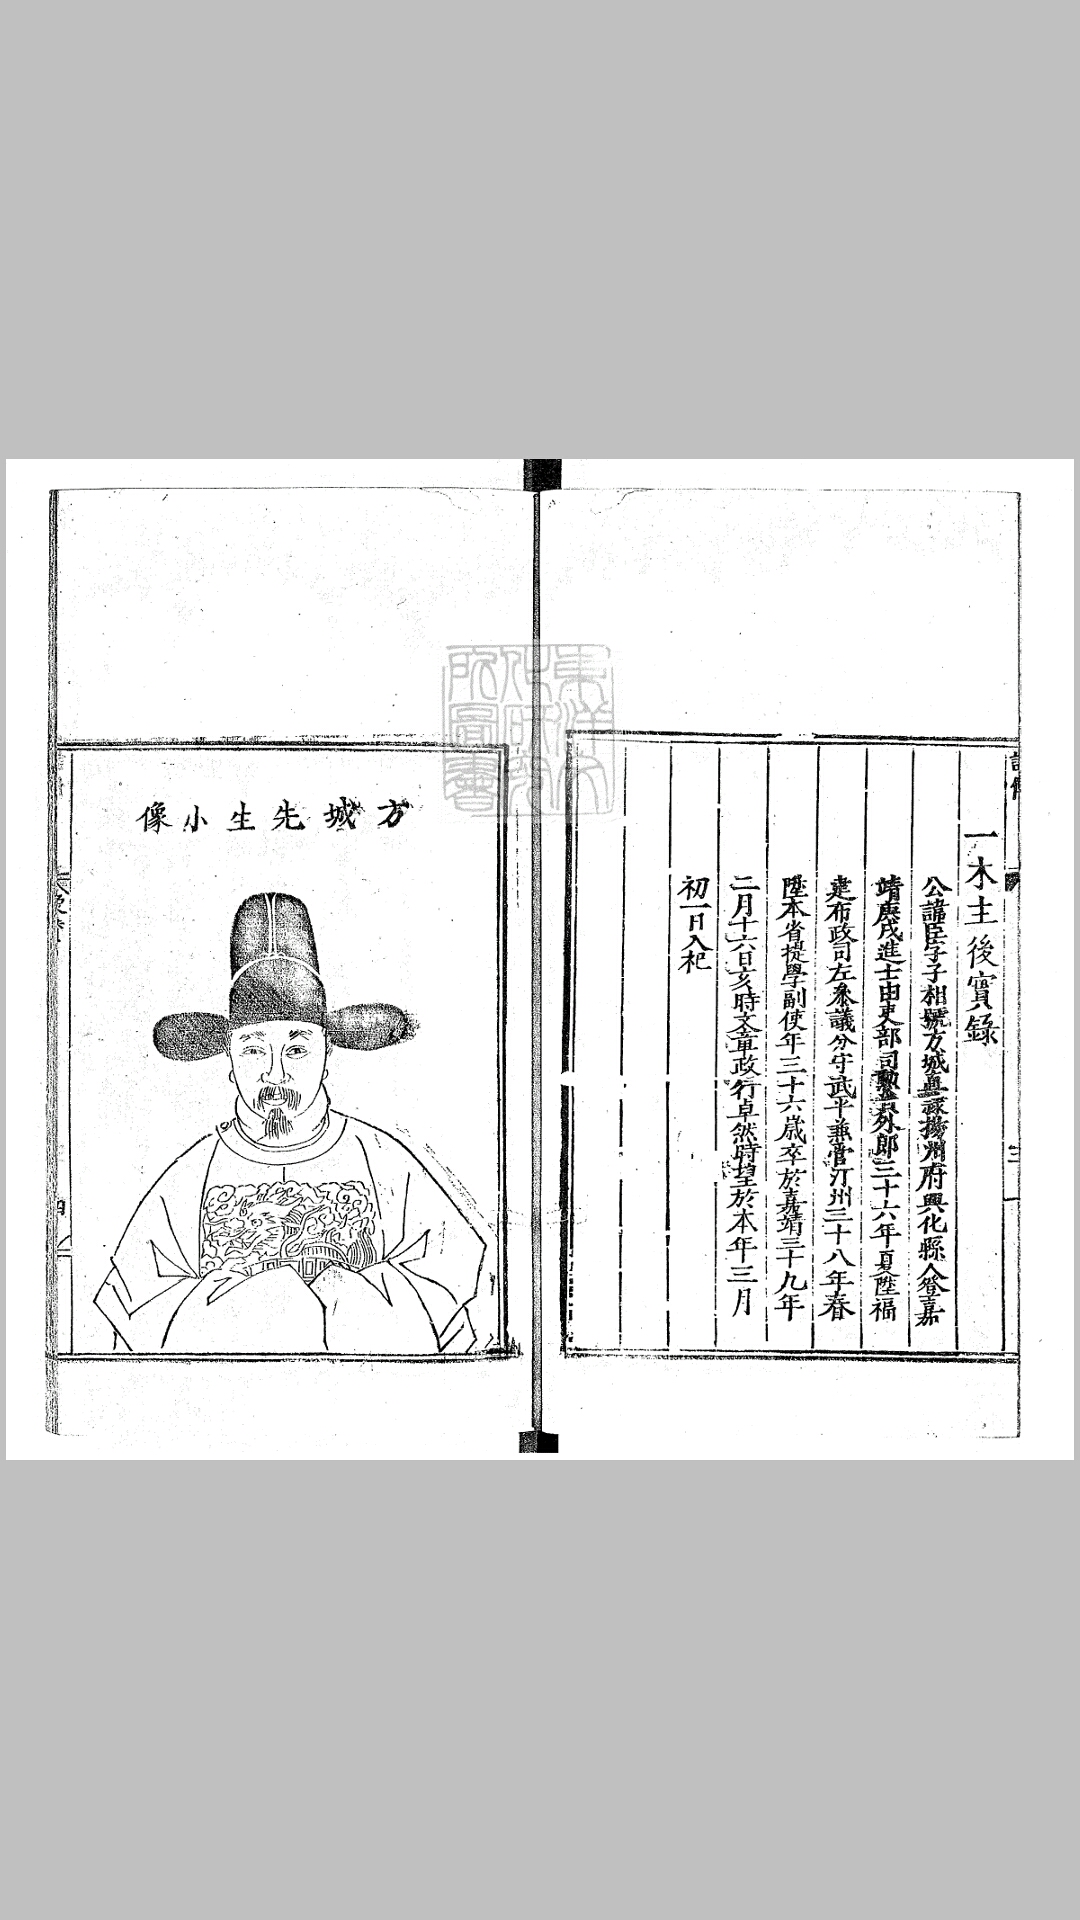 一木主後實錄
公諱臣字子相號方城直隸揚州府興化縣人登嘉
靖庚戌進士由吏部司勳員外郎三十六年夏陞福
建布政司左叅議分守武平兼管汀州三十八年春
陞本省提學副使年三十六歲卒於嘉靖三十九年
二月十六日亥時文章政行卓然時望於本年三月
初一日入祀
三
方城先生小像
四
東洋文
化研究
所圖書